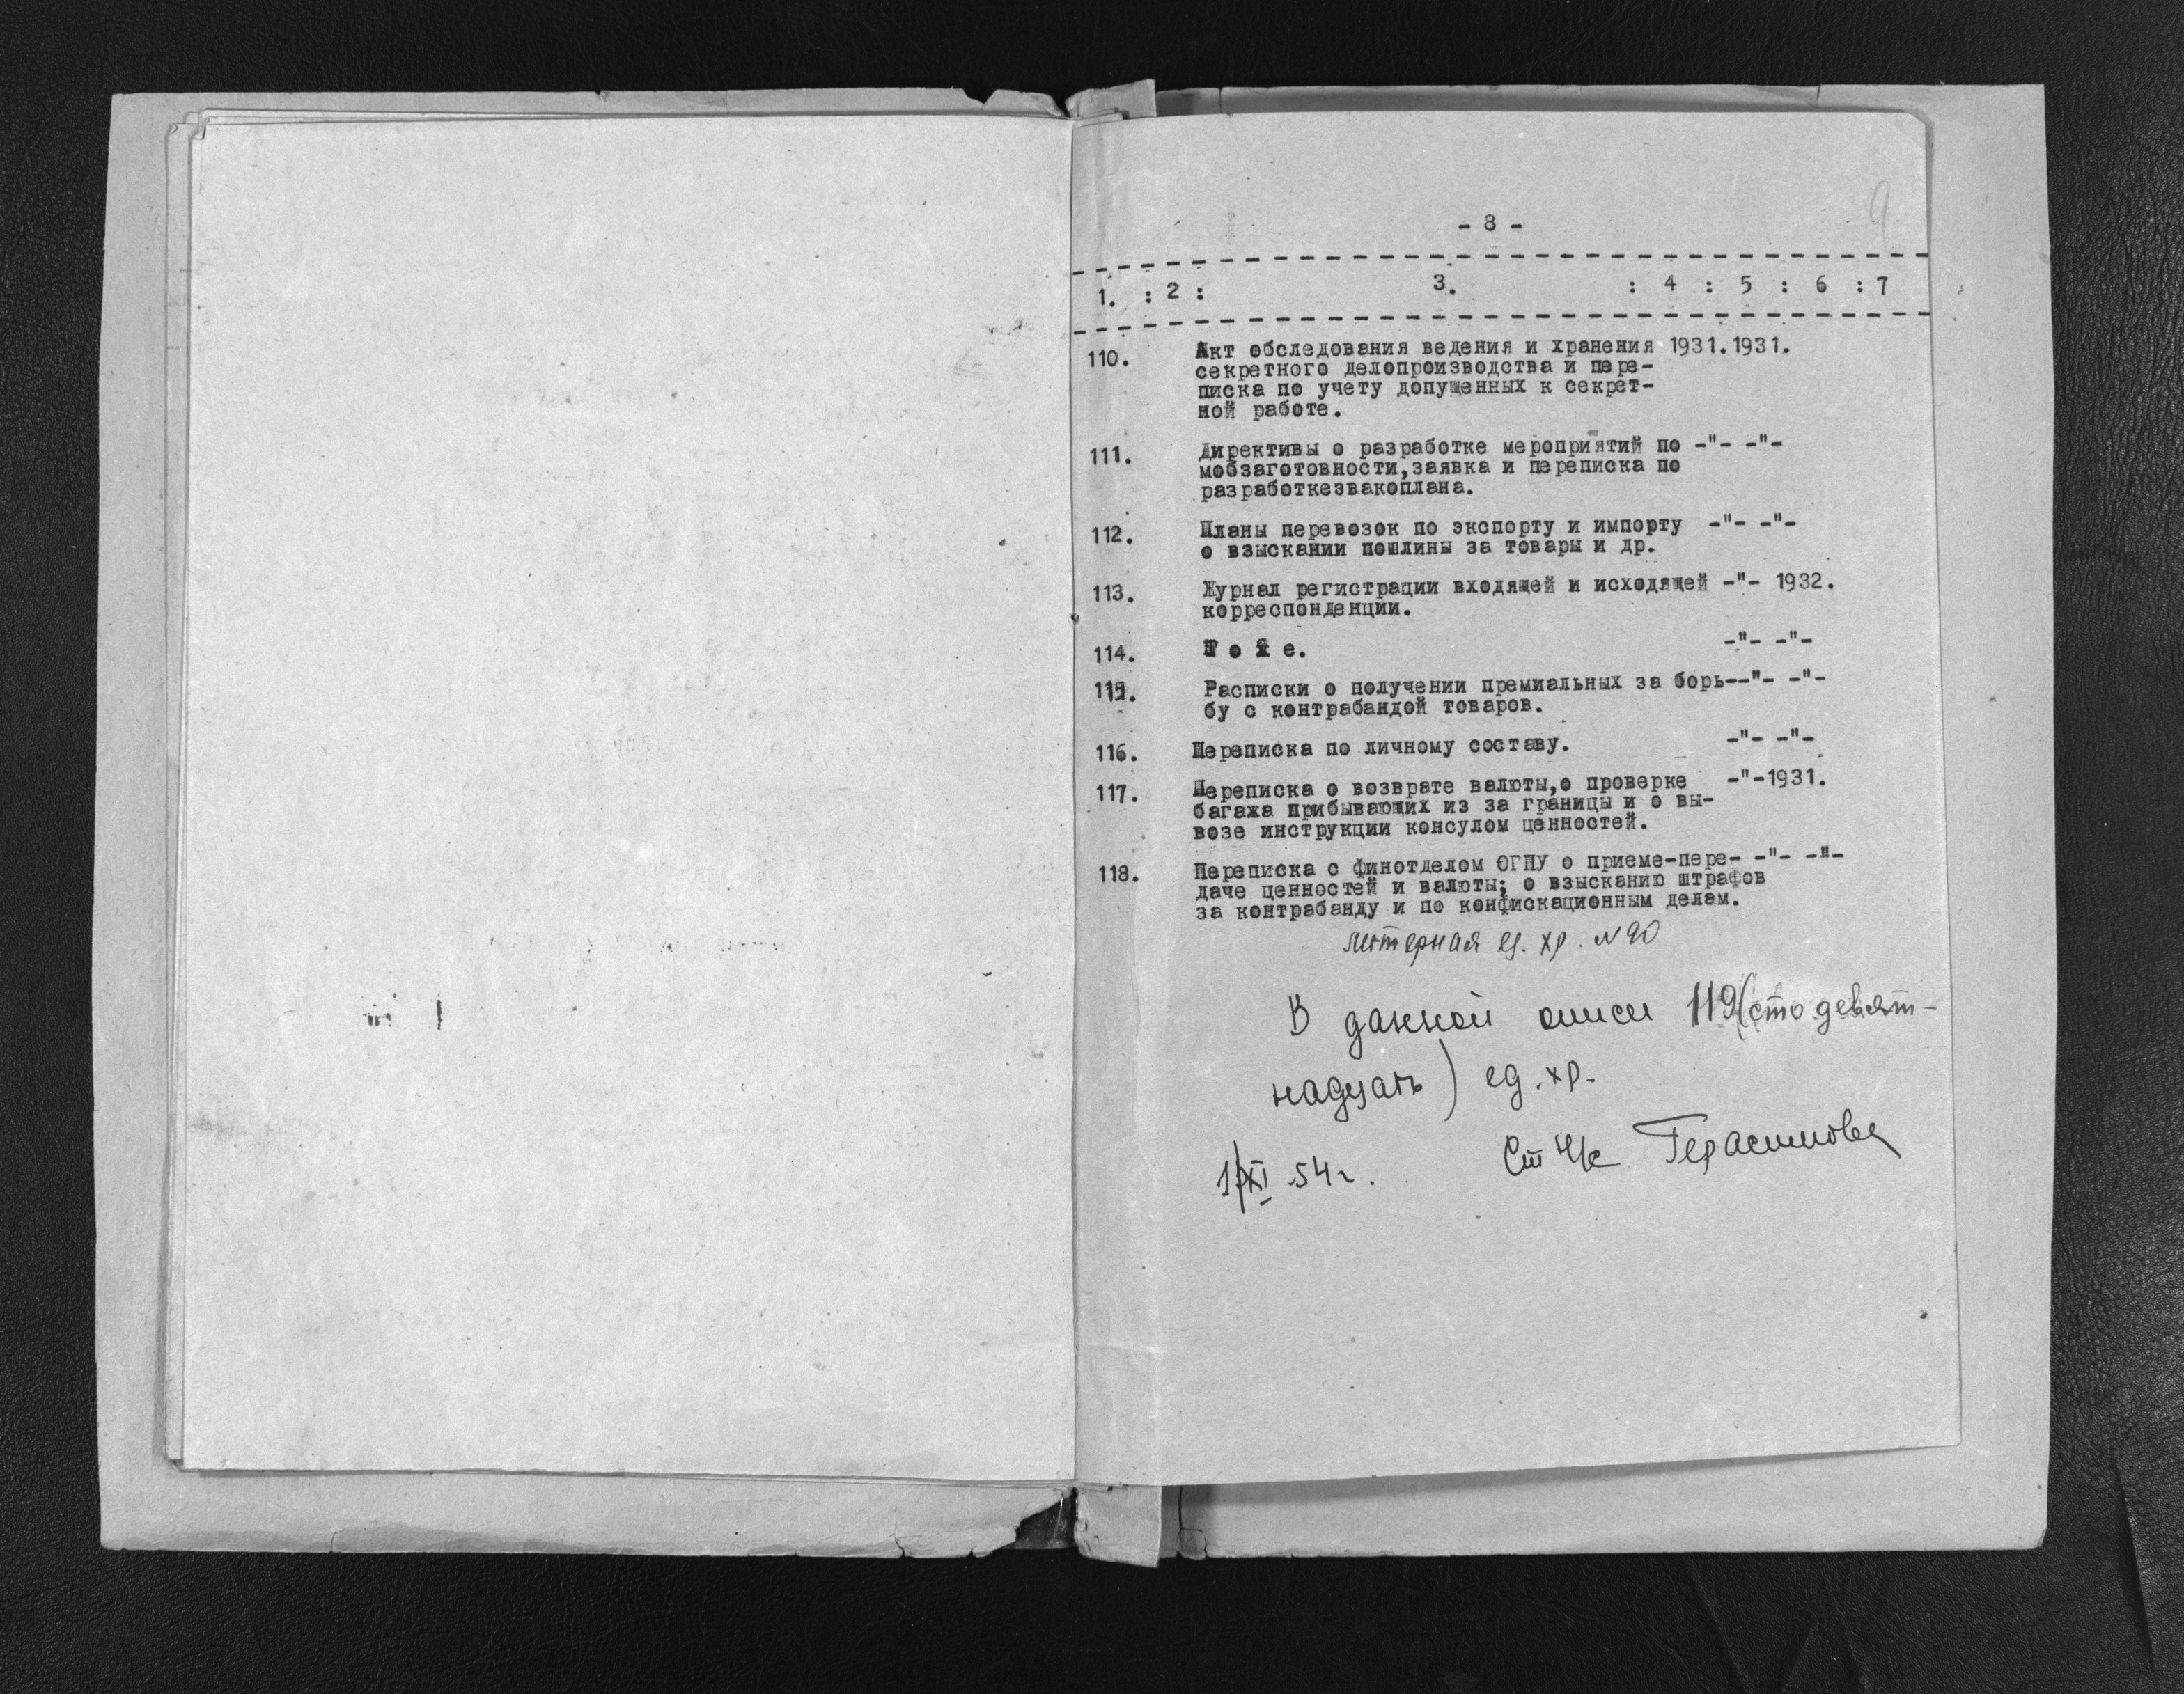 9
- 8 -
1. : 2 : 3. : 4 : 5 : 6 : 7
110. Акт обследования ведения и хранения 1931.1931.
секретного делопроизводства и пере-
писка по учету допущенных к секрет-
ной работе.
111. Директивы о разработке мероприятий по -"- -"-
мобзаготовности,заявка и переписка по
разработкеэвакоплана.
112. Планы перевозок по экспорту и импорту -"- -"-
о взыскании пошлины за товары и др.
113. Журнал регистрации входящей и исходящей -"- 1932.
корреспонденции.
114. Т о ж е. -"- -"-
115. Расписки о получении премиальных за борь--"- -"-
бу с контрабандой товаров.
116. Переписка по личному составу. -"- -"-
117. Переписка о возврате валюты,о проверке -"-1931.
багажа прибывающих из за границы и о вы-
возе инструкции консулом ценностей.
118. Переписка с финотделом ОГПУ о приеме-пере- -"- -"-
даче ценностей и валюты; о взысканию штрафов
за контрабанду и по конфискационным делам.
литерная ед. хр. N 90
В данной описи 119 (сто девят-
надцать) ед. хр.
Ст н/с Герасимова
1/XI 54 г.